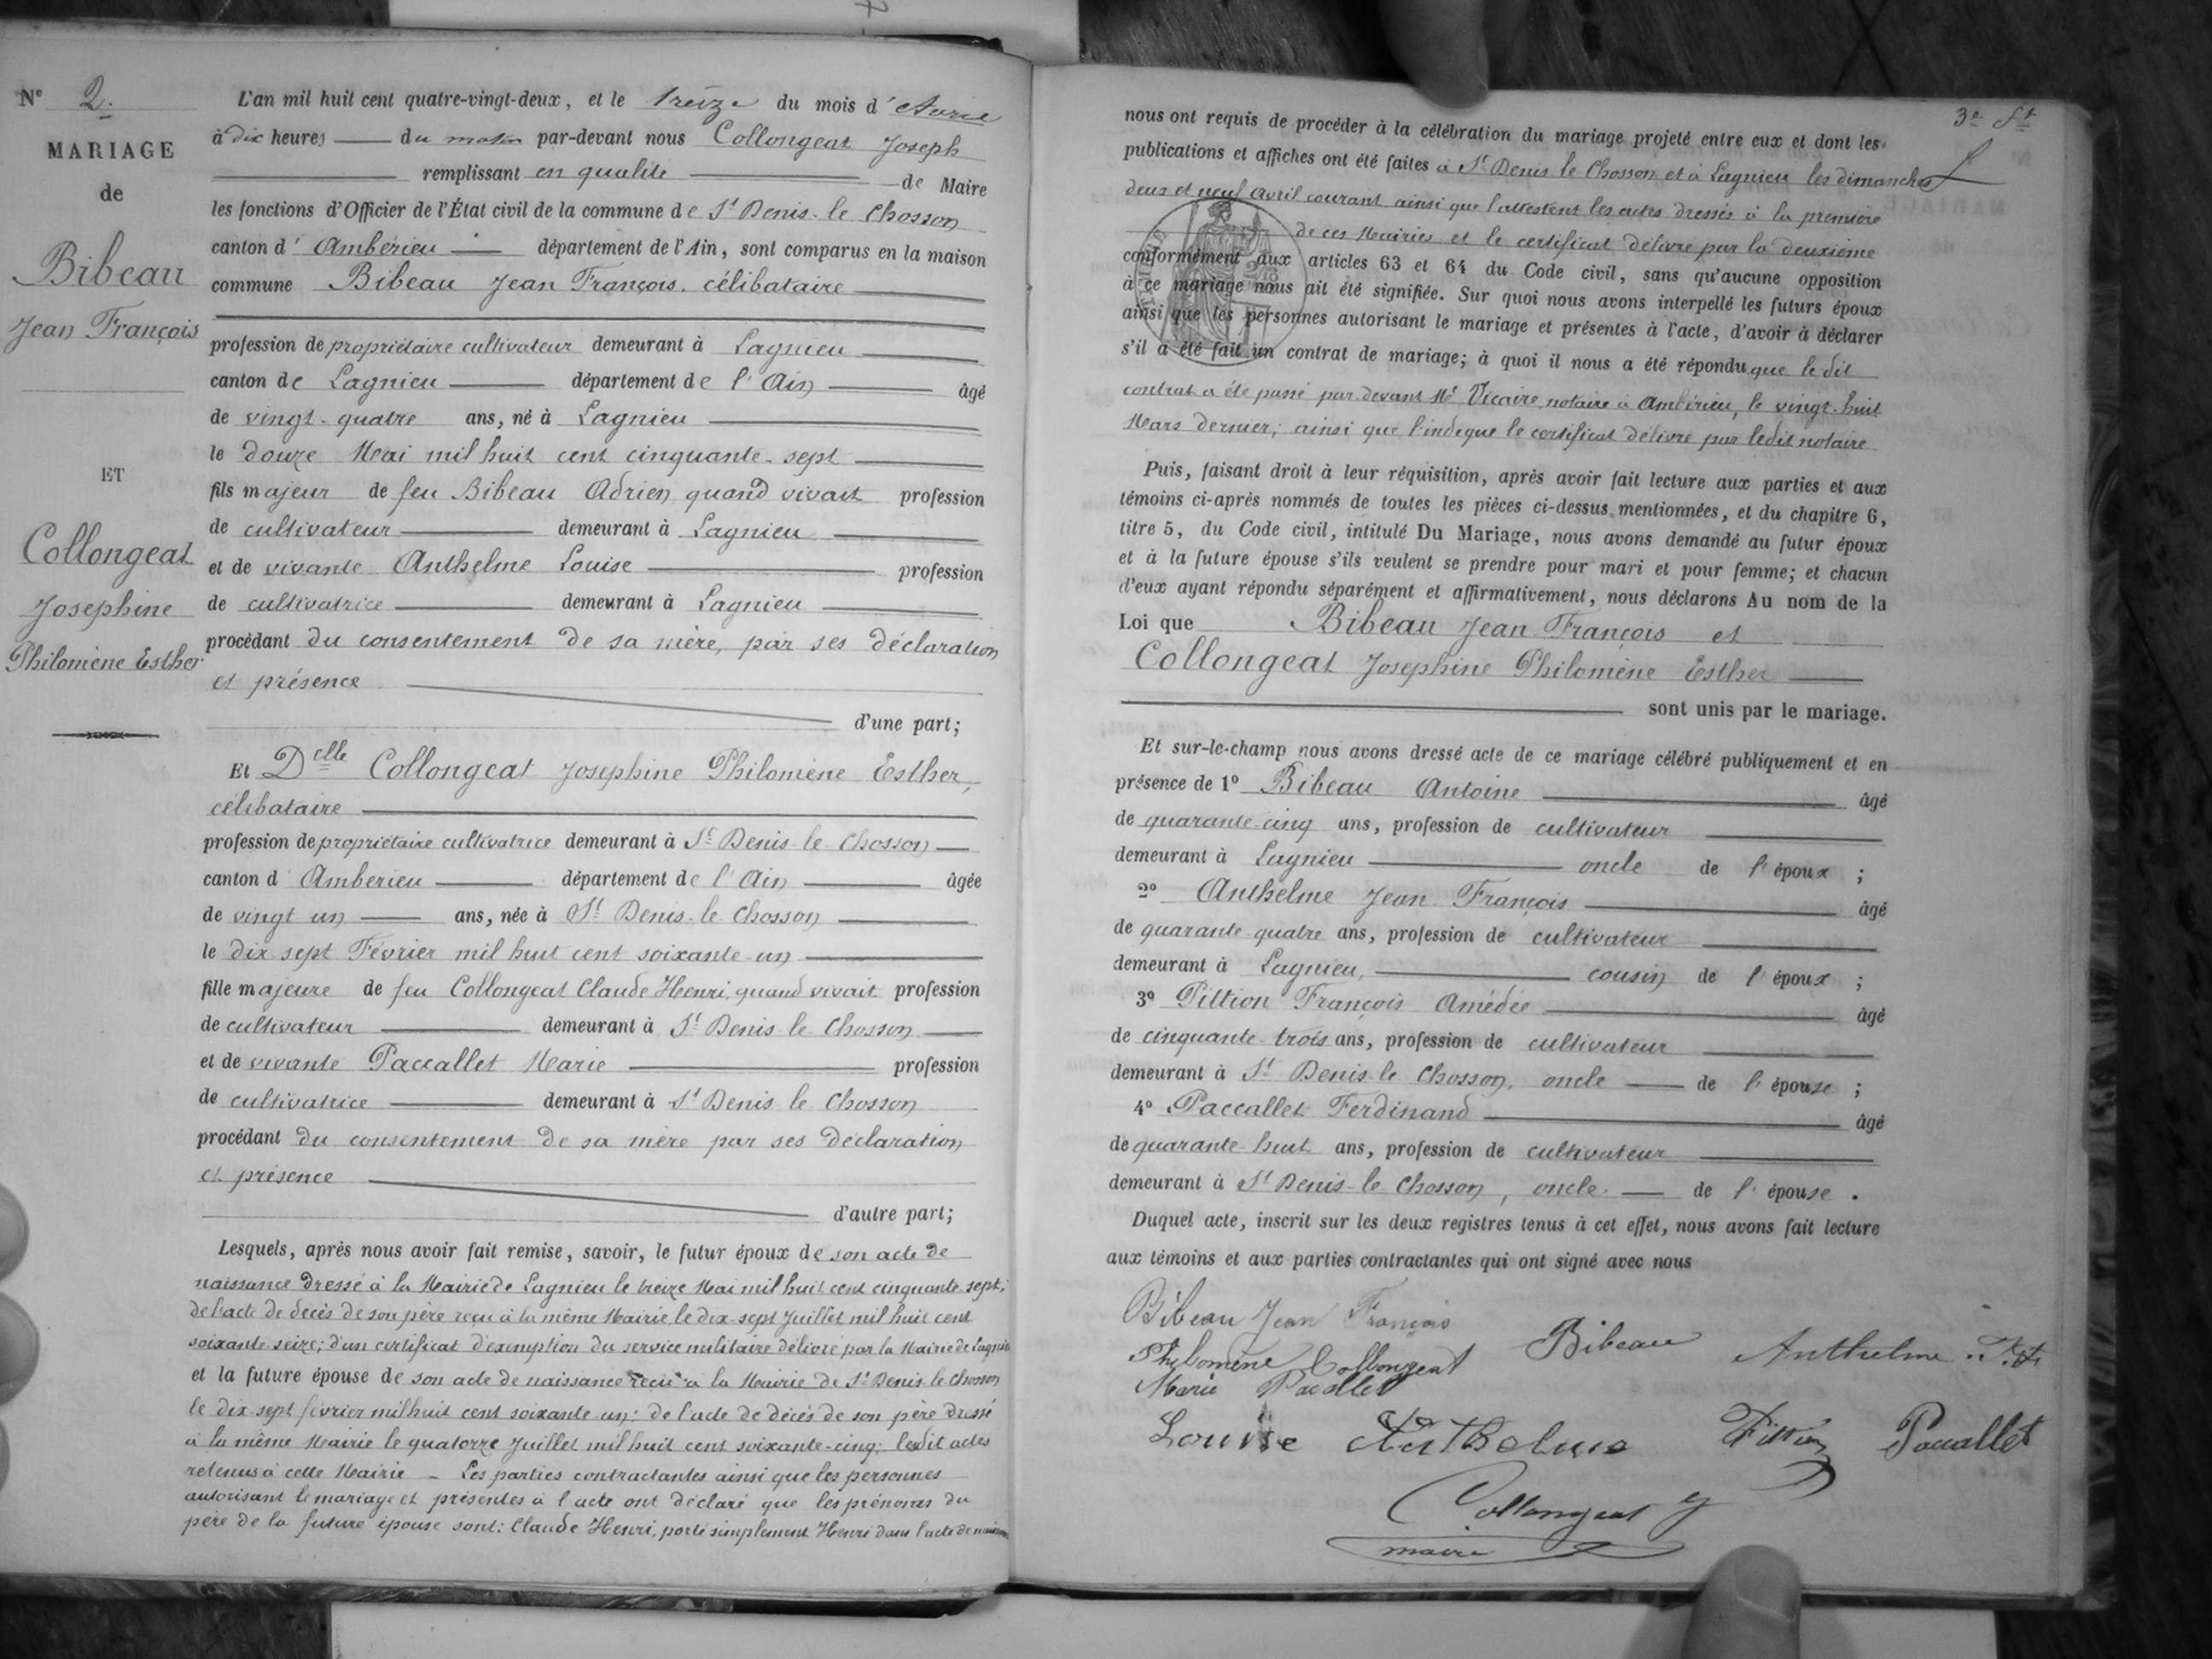 N° 2.
MARIAGE
de
Bibeau
Jean François
ET
Collongeat
Josephine
Philomène Esther
L'an mil huit cent quatre-vingt-deux, et le treize du mois d'Avril
à dix heures du matin par-devant nous Collongeat Joseph
remplissant en qualité de Maire
les fonctions d'Officier de l'État civil de la commune de St Denis-le Chosson
canton d'Ambérieu département de l'Ain, sont comparus en la maison
commune Bibeau Jean François, célibataire
profession de propriétaire cultivateur demeurant à Lagnieu
canton de Lagnieu département de l'Ain âgé
de vingt-quatre ans, né à Lagnieu
le douze Mai mil huit cent cinquante-sept
fils majeur de feu Bibeau Adrien quand vivait profession
de cultivateur demeurant à Lagnieu
et de vivante Anthelme Louise profession
de cultivatrice demeurant à Lagnieu
procédant du consentement de sa mère, par ses déclaration
et présence
d'une part;
Et Delle Collongeat Josephine Philomène Esther,
célibataire
profession de propriétaire cultivatrice demeurant à St Denis-le Chosson
canton d'Amberieu département de l'Ain âgée
de vingt un ans, née à St Denis-le-Chosson
le dix sept Février mil huit cent soixante-un
fille majeure de feu Collongeat Claude Henri, quand vivait profession
de cultivateur demeurant à St Denis-le Chosson
et de vivante Paccallet Marie profession
de cultivatrice demeurant à St Denis le Chosson
procédant du consentement de sa mère par ses déclaration
et présence
d'autre part;
Lesquels, après nous avoir fait remise, savoir, le futur époux de son acte de
naissance dressé à la Mairie de Lagnieu le treize Mai mil huit cent cinquante-sept;
de l'acte de décès de son père reçu à la même Mairie le dix-sept Juillet mil huit cent
soixante-seize; d'un certificat d'exemption du service militaire délivré par la Mairie de Lagnieu
et la future épouse de son acte de naissance reçu à la Mairie de St Denis-le Chosson
le dix sept février mil huit cent soixante-un; de l'acte de décès de son père dressé
à la même Mairie le quatorze Juillet mil huit cent soixante-cinq; lesdit actes
retenus à cette Mairie - Les parties contractantes ainsi que les personnes
autorisant le mariage et présentes à l'acte ont déclaré que les prénoms du
père de la future épouse sont: Claude Henri, porté simplement Henri dans l'acte de
3e
nous ont requis de procéder à la célébration du mariage projeté entre eux et dont les
publications et affiches ont été faites à St Denis le Chosson et à Lagnieu les dimanches
deux et neuf avril courant ainsi que l'attestent les actes dressés à la première
de ces Mairies et le certificat délivré par la deuxième
conformément aux articles 63 et 64 du Code civil, sans qu'aucune opposition
à ce mariage nous ait été signifiée. Sur quoi nous avons interpellé les futurs époux
ainsi que les personnes autorisant le mariage et présentes à l'acte, d'avoir à déclarer
s'il a été fait un contrat de mariage; à quoi il nous a été répondu que le dit
contrat a été passé par devant Me Vicaire, notaire à Ambérieu, le vingt-huit
Mars dernier; ainsi que l'indique le certificat délivré par ledit notaire
Puis, faisant droit à leur réquisition, après avoir fait lecture aux parties et aux
témoins ci-après nommés de toutes les pièces ci-dessus mentionnées, et du chapitre 6,
titre 5, du Code civil, intitulé Du Mariage, nous avons demandé au futur époux
et à la future épouse s'ils veulent se prendre pour mari et pour femme; et chacun
d'eux ayant répondu séparément et affirmativement, nous déclarons Au nom de la
Loi que Bibeau Jean François et
Collongeat Josephine Philomène Esther
sont unis par le mariage.
Et sur-le-champ nous avons dressé acte de ce mariage célébré publiquement et en
présence de 1° Bibeau Antoine âgé
de quarante-cinq ans, profession de cultivateur
demeurant à Lagnieu oncle de l'époux ;
2° Anthelme Jean François âgé
de quarante-quatre ans, profession de cultivateur
demeurant à Lagnieu, cousin de l'époux ;
3° Pittion François Amédée âgé
de cinquante-trois ans, profession de cultivateur
demeurant à St Denis-le Chosson, oncle de l'épouse ;
4° Paccallet Ferdinand âgé
de quarante-huit ans, profession de cultivateur
demeurant à St Denis-le Chosson, oncle de l'épouse .
Duquel acte, inscrit sur les deux registres tenus à cet effet, nous avons fait lecture
aux témoins et aux parties contractantes qui ont signé avec nous
Bibeau Jean François
Philomène Collongeat Bibeau Anthelme
Marie Pacallet
Louise Anthelme Pittion Pacallet
Collongeat J
maire